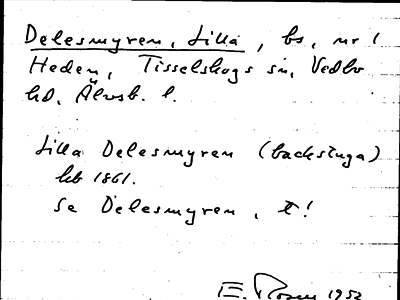 Delesmyren, Lilla, bs, nr 1
Heden, Tisselskogs sn, Vedbo
hd, Älvsb. l.
Lilla Delesmyren (backstuga)
hfb 1861.
se Delesmyren, t!
E. Rosén 1952